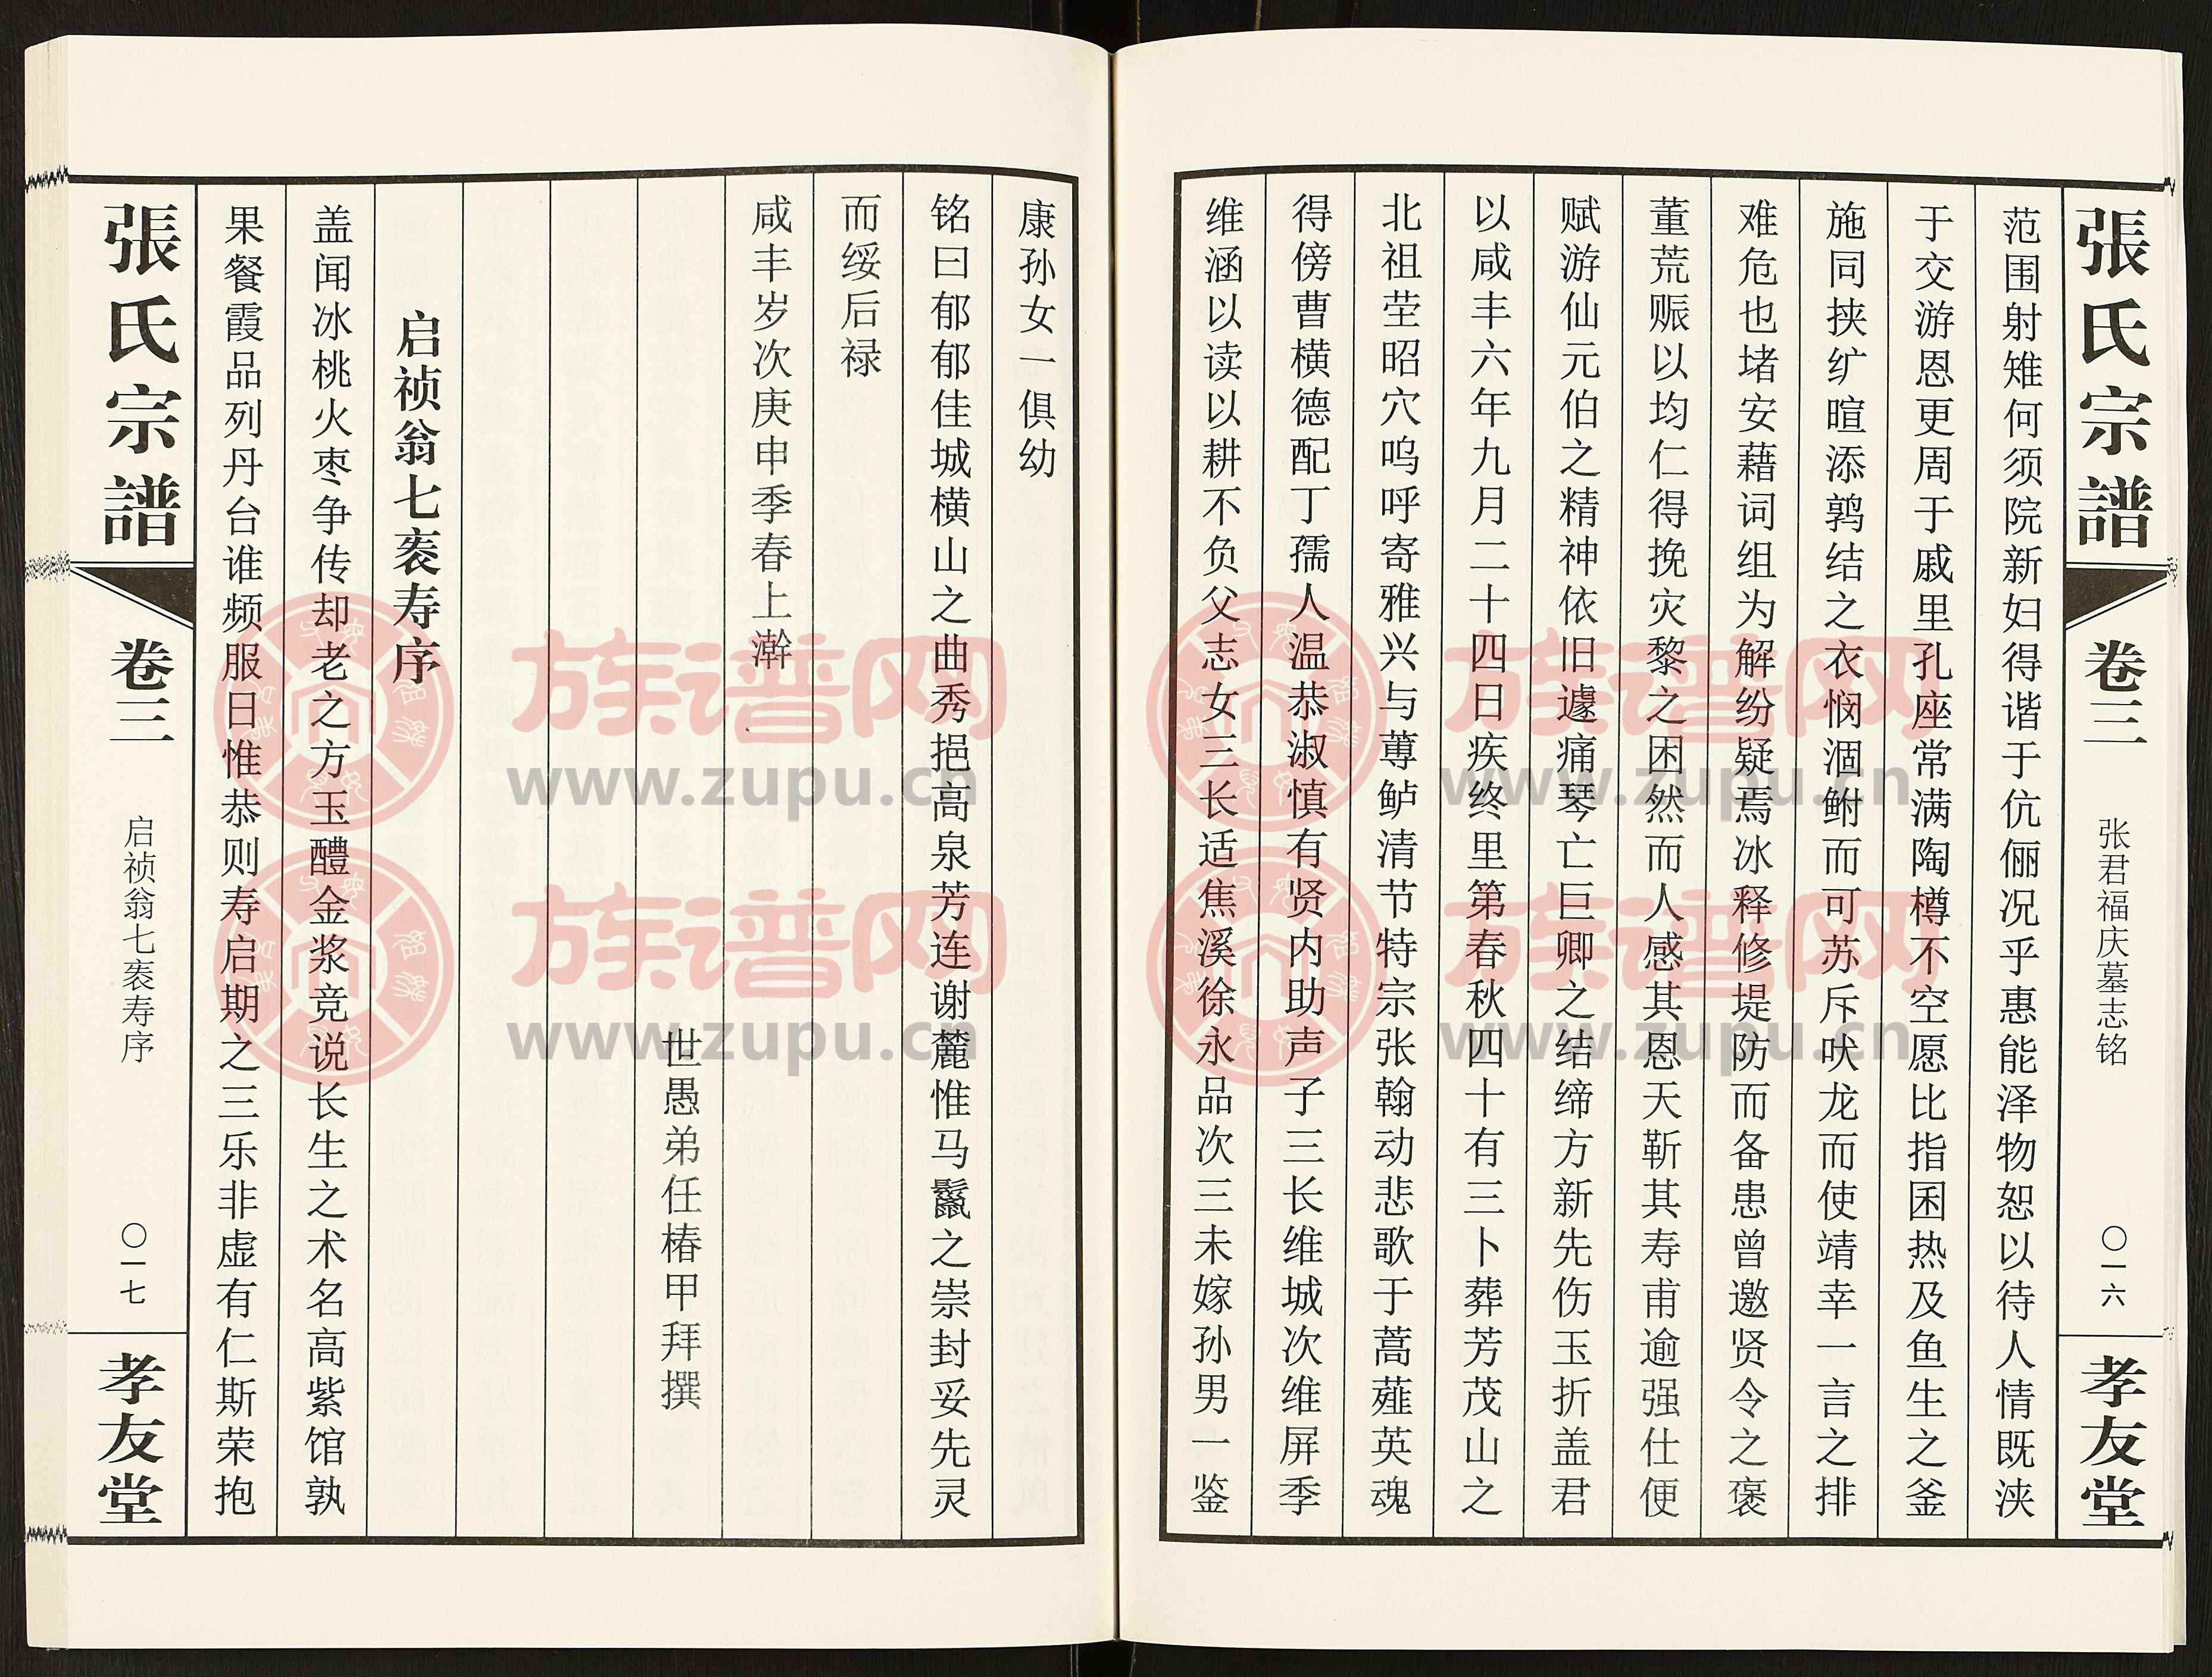 張氏宗譜
卷三
张君福庆墓志铭
〇一六
孝友堂
范围射雉何须院新妇得谐于伉俪况乎惠能泽物恕以待人情既浃
于交游恩更周于戚里孔座常满陶樽不空愿比指囷热及鱼生之釜
施同挟纩暄添鹑结之衣悯涸鲋而可苏斥吠龙而使靖幸一言之排
难危也堵安藉词组为解纷疑焉冰释修堤防而备患曾邀贤令之褒
董荒赈以均仁得挽灾黎之困然而人感其恩天靳其寿甫逾强仕便
赋游仙元伯之精神依旧遽痛琴亡巨卿之结缔方新先伤玉折盖君
以咸丰六年九月二十四日疾终里第春秋四十有三卜葬芳茂山之
北祖茔昭穴呜呼寄雅兴与蓴鲈清节特宗张翰动悲歌于蒿薤英魂
得傍曹横德配丁孺人温恭淑慎有贤内助声子三长维城次维屏季
维涵以读以耕不负父志女三长适焦溪徐永品次三未嫁孙男一鉴
康孙女一俱幼
铭曰郁郁佳城横山之曲秀挹高泉芳连谢麓惟马鬣之崇封妥先灵
而绥后禄
咸丰岁次庚申季春上澣
世愚弟任椿甲拜撰
启祯翁七袠寿序
盖闻冰桃火枣争传却老之方玉醴金浆竞说长生之术名高紫馆孰
果餐霞品列丹台谁频服日惟恭则寿启期之三乐非虚有仁斯荣抱
張氏宗譜
卷三
启祯翁七袠寿序
〇一七
孝友堂
族谱网
www.zupu.cn
族谱网
www.zupu.cn
族谱网
www.zupu.cn
族谱网
www.zupu.cn